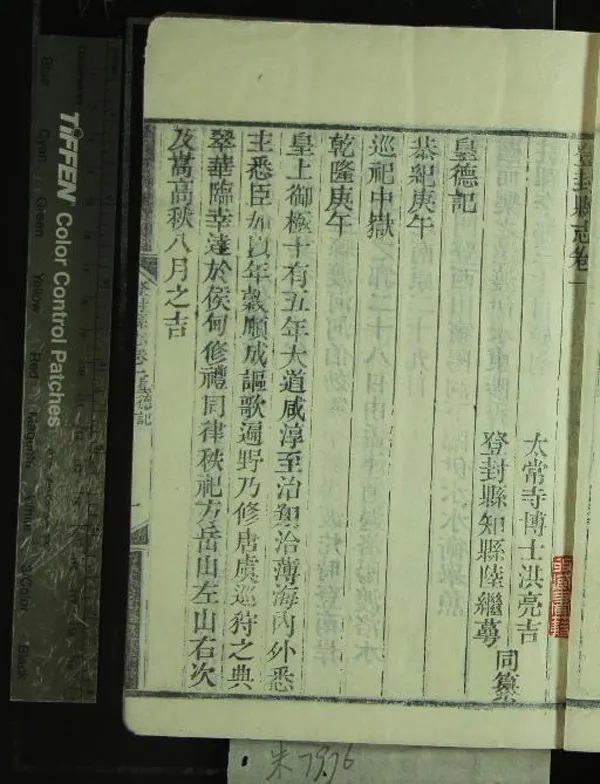 登封縣志卷一
太常寺博士洪亮吉
登封縣知縣陸繼萼
同纂
皇德記
恭紀庚午
巡祀中嶽
乾隆庚午
皇上御極十有五年大道咸淳至治翔洽薄海內外悉
主悉臣加以年穀順成謳歌遍野乃修唐虞巡狩之典
翠華臨幸達於侯甸修禮同律秩祀方岳山左山右次
及嵩高秋八月之吉
登封縣志卷一皇德記
一
TIFFEN Color Control Patches
Blue
Cyan
Green
Yellow
Red
Magenta
White
3/Color
Black
朱7976